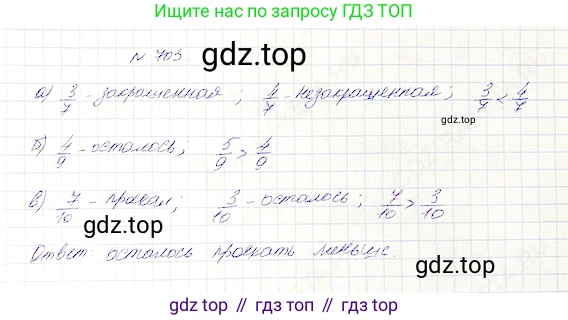 Ищите нас по запросу ГДЗ ТОП
N 703
gdz.top
а) 3/7 - закрашенная; 4/7 - незакрашенная; 3/7 < 4/7
gdz.top
б) 4/9 - осталось; 5/9 > 4/9
в) 7/10 - проехал; 3/10 - осталось; 7/10 > 3/10
gdz.top
Ответ: осталось проехать меньше.
gdz.top
gdz.top // гдз топ // гдз.топ